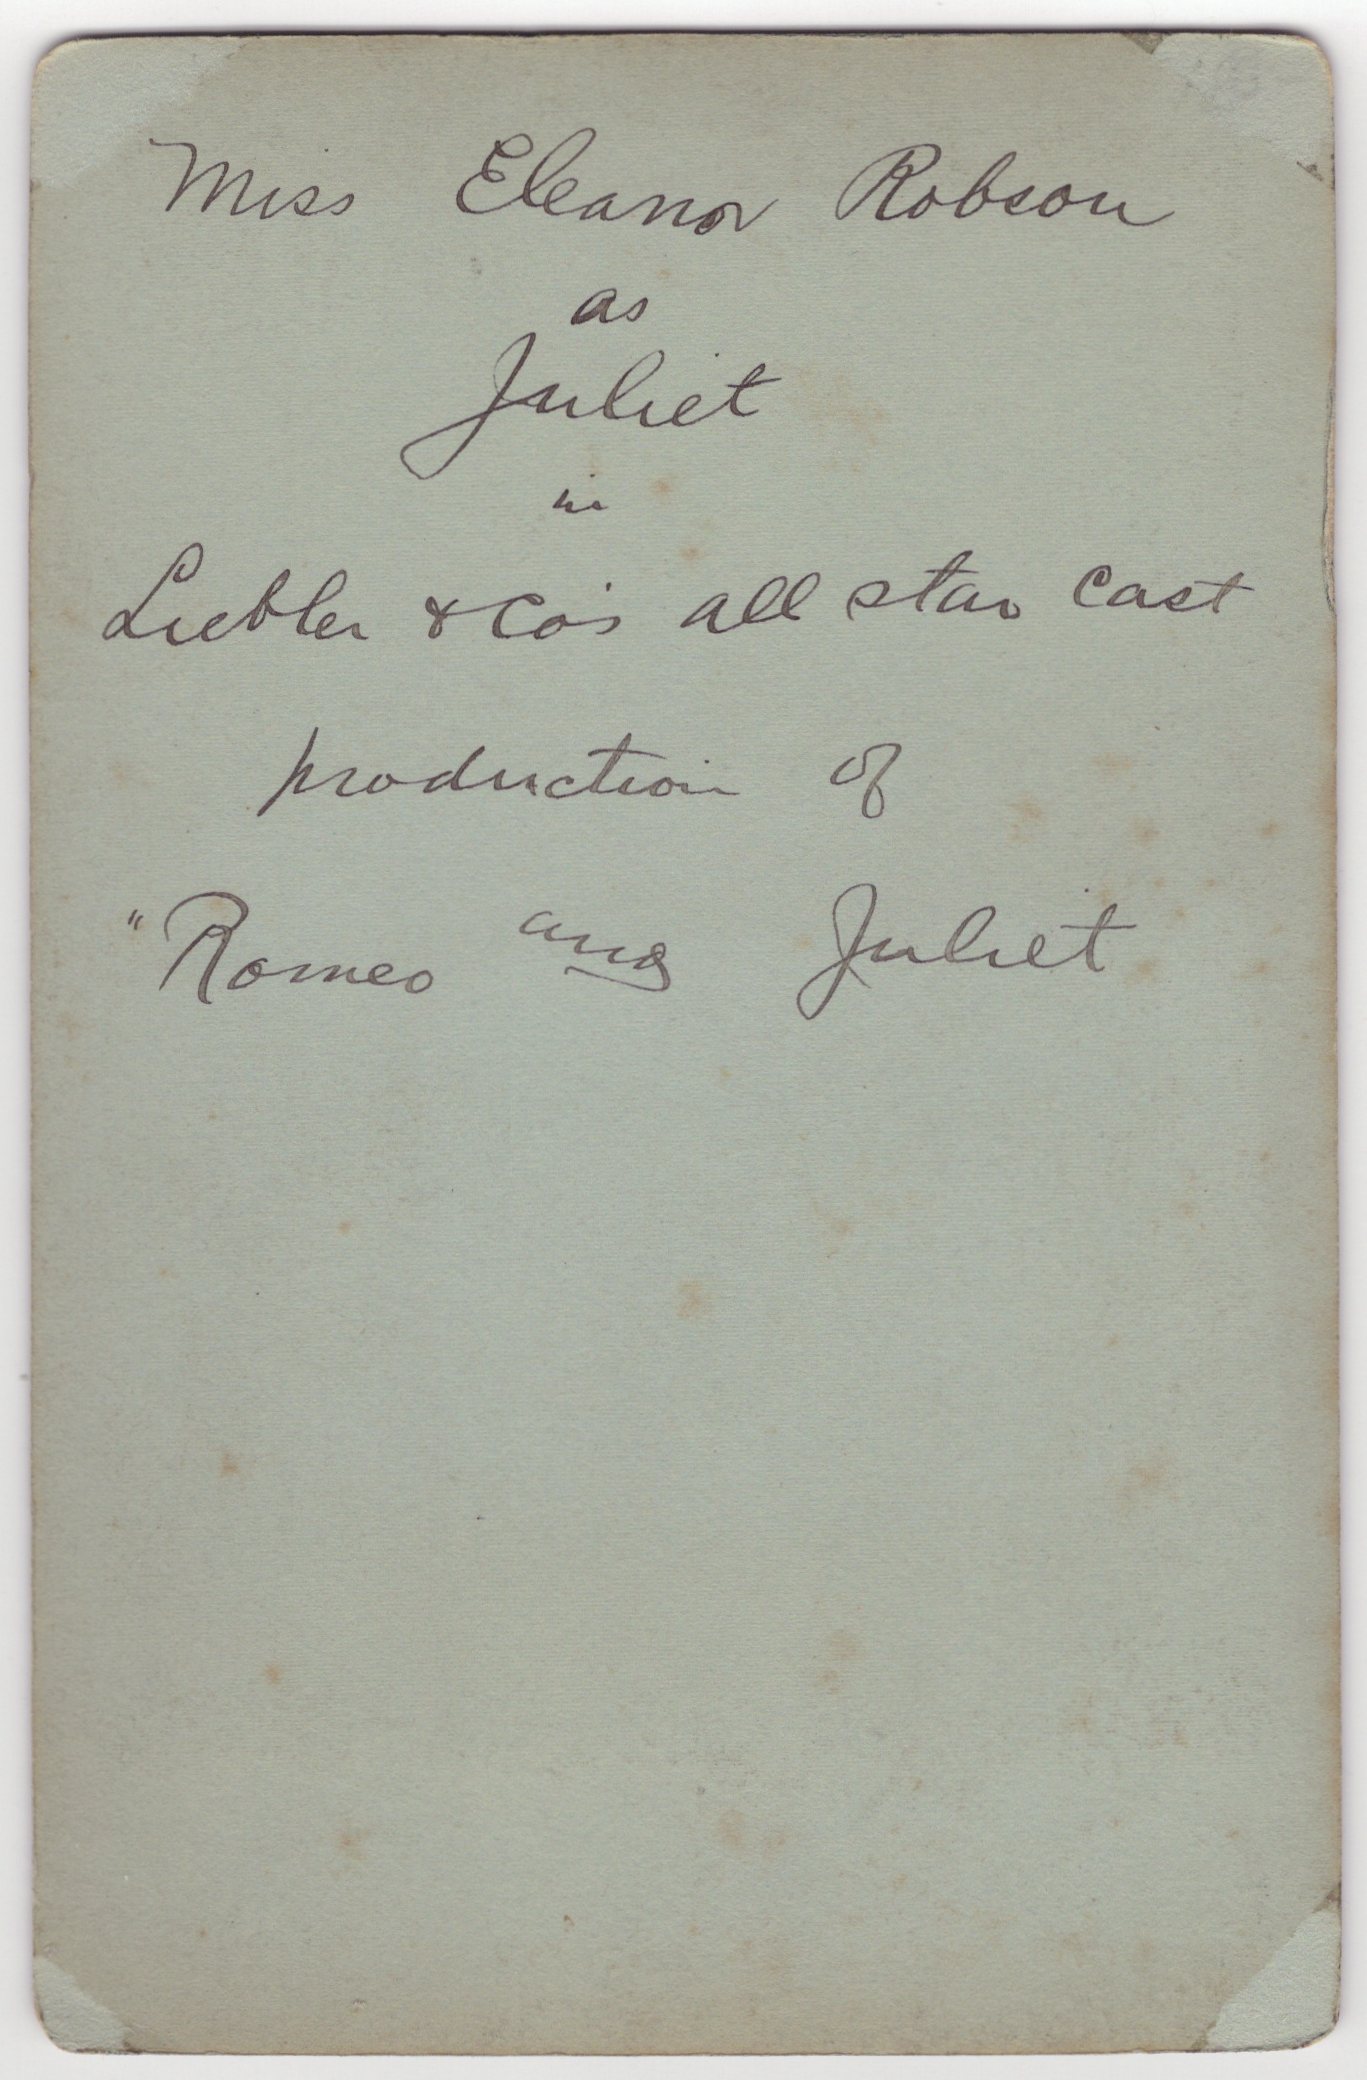 Miss Eleanor Robson
as
Juliet
in
Liebler & Co's all star cast
production of
"Romeo and Juliet